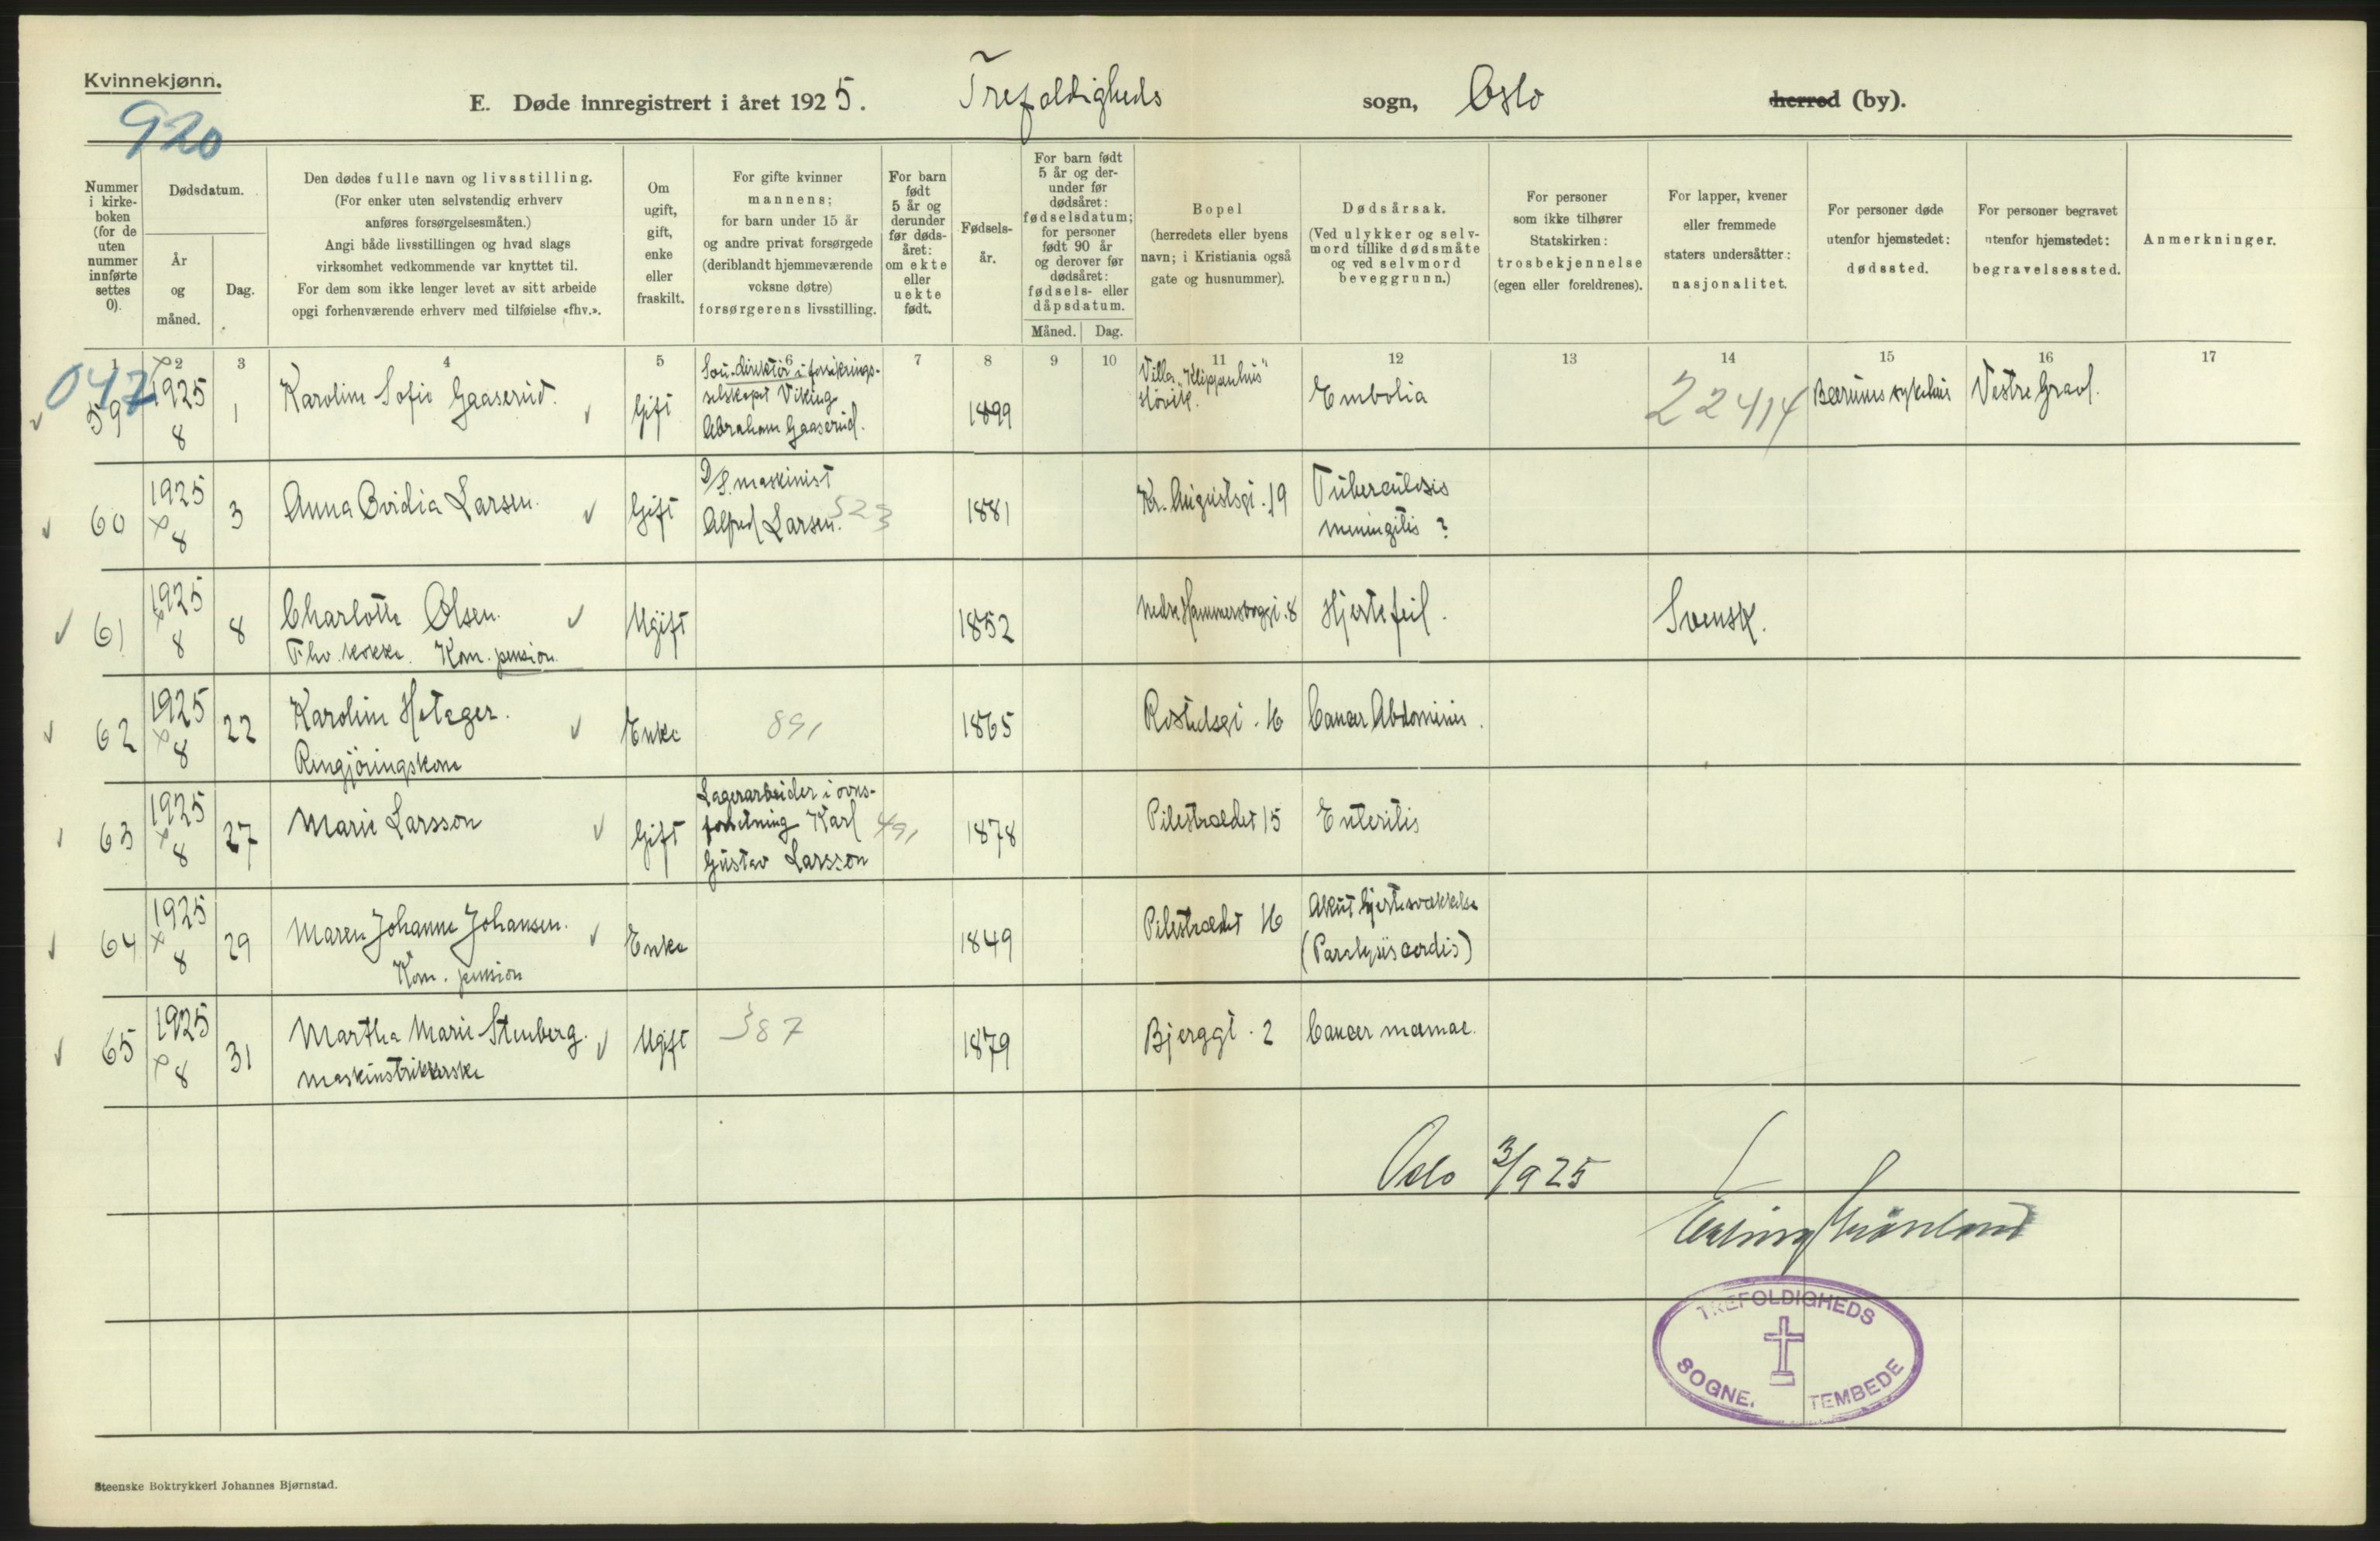 Kvinnekjønn.
920
E. Døde innregistrert i året 1925. Trefoldigheds sogn, Oslo herred (by).
Nummer i kirke-boken (for de uten nummer innførte settes 0).
Dødsdatum.
År og måned.
Dag.
Den dødes fulle navn og livsstilling.
(For enker uten selvstendig erhverv
anføres forsørgelsesmåten.)
Angi både livsstillingen og hvad slags
virksomhet vedkommende var knyttet til.
For dem som ikke lenger levet av sitt arbeide
opgi forhenværende erhverv med tilføielse «fhv.».
Om
ugift,
gift,
enke
eller
fraskilt.
For gifte kvinner
mannens;
for barn under 15 år
og andre privat forsørgede
(deriblandt hjemmeværende
voksne døtre)
forsørgerens livsstilling.
For barn
født
5 år og
derunder
før døds-
året:
om ekte
eller
uekte
født.
Fødsels-
år.
For barn født
5 år og der-
under før
dødsåret:
fødselsdatum;
for personer
født 90 år
og derover før
dødsåret:
fødsels- eller
dåpsdatum.
Måned. Dag.
Bopel
(herredets eller byens
navn; i Kristiania også
gate og husnummer).
Dødsårsak.
(Ved ulykker og selv-
mord tillike dødsmåte
og ved selvmord
beveggrunn.)
For personer
som ikke tilhører
Statskirken:
trosbekjennelse
(egen eller foreldrenes).
For lapper, kvener
eller fremmede
staters undersåtter:
nasjonalitet.
For personer døde
utenfor hjemstedet:
dødssted.
For personer begravet
utenfor hjemstedet:
begravelsessted.
Anmerkninger.
1 2 3 4 5 6 7 8 9 10 11 12 13 14 15 16 17
047
59 1925 8 1 Karoline Sofie Gaaserud. Gift
Sou-direktör i forsikrings-
selskapet Viking
Abraham Gaaserud.
1899
Villa "Klippenhus"
Hövik.
Embolia 22414 Bærums sykehus Vestre Gravl.
60 1925 8 3 Anna Ovidia Larsen. Gift
D/S. maskinist
Alfred Larsen. 523
1881 Kr. Augustsgt. 19
Tuberculosis
meningitis ?
61 1925 8 8 Charlotte Olsen.
Fhv. kokke. Kom. pension.
Ugift 1852 Nedre Hammersborggt. 8 Hjertefeil. Svensk.
62 1925 8 22 Karoline Hotager.
Rengjöringskone
Enke 891 1865 Rostedsgt. 16 Cancer Abdominis.
63 1925 8 27 Marie Larsson Gift
Lagerarbeider i ovns-
forretning Karl
Gustav Larsson
491 1878 Pilestrædet 15 Enteritis
64 1925 8 29 Maren Johanne Johansen.
Kom. pension
Enke 1849 Pilestrædet 16
Akut hjertesvækkelse
(Paralysis cordis)
65 1925 8 31 Martha Marie Stenberg.
Maskinstrikkerske
Ugift 387 1879 Bjerggt. 2 Cancer mamae.
Oslo 3/9 25
Erling Grönland
TREFOLDIGHEDS
SOGNE. TEMBEDE
Steenske Boktrykkeri Johannes Bjørnstad.